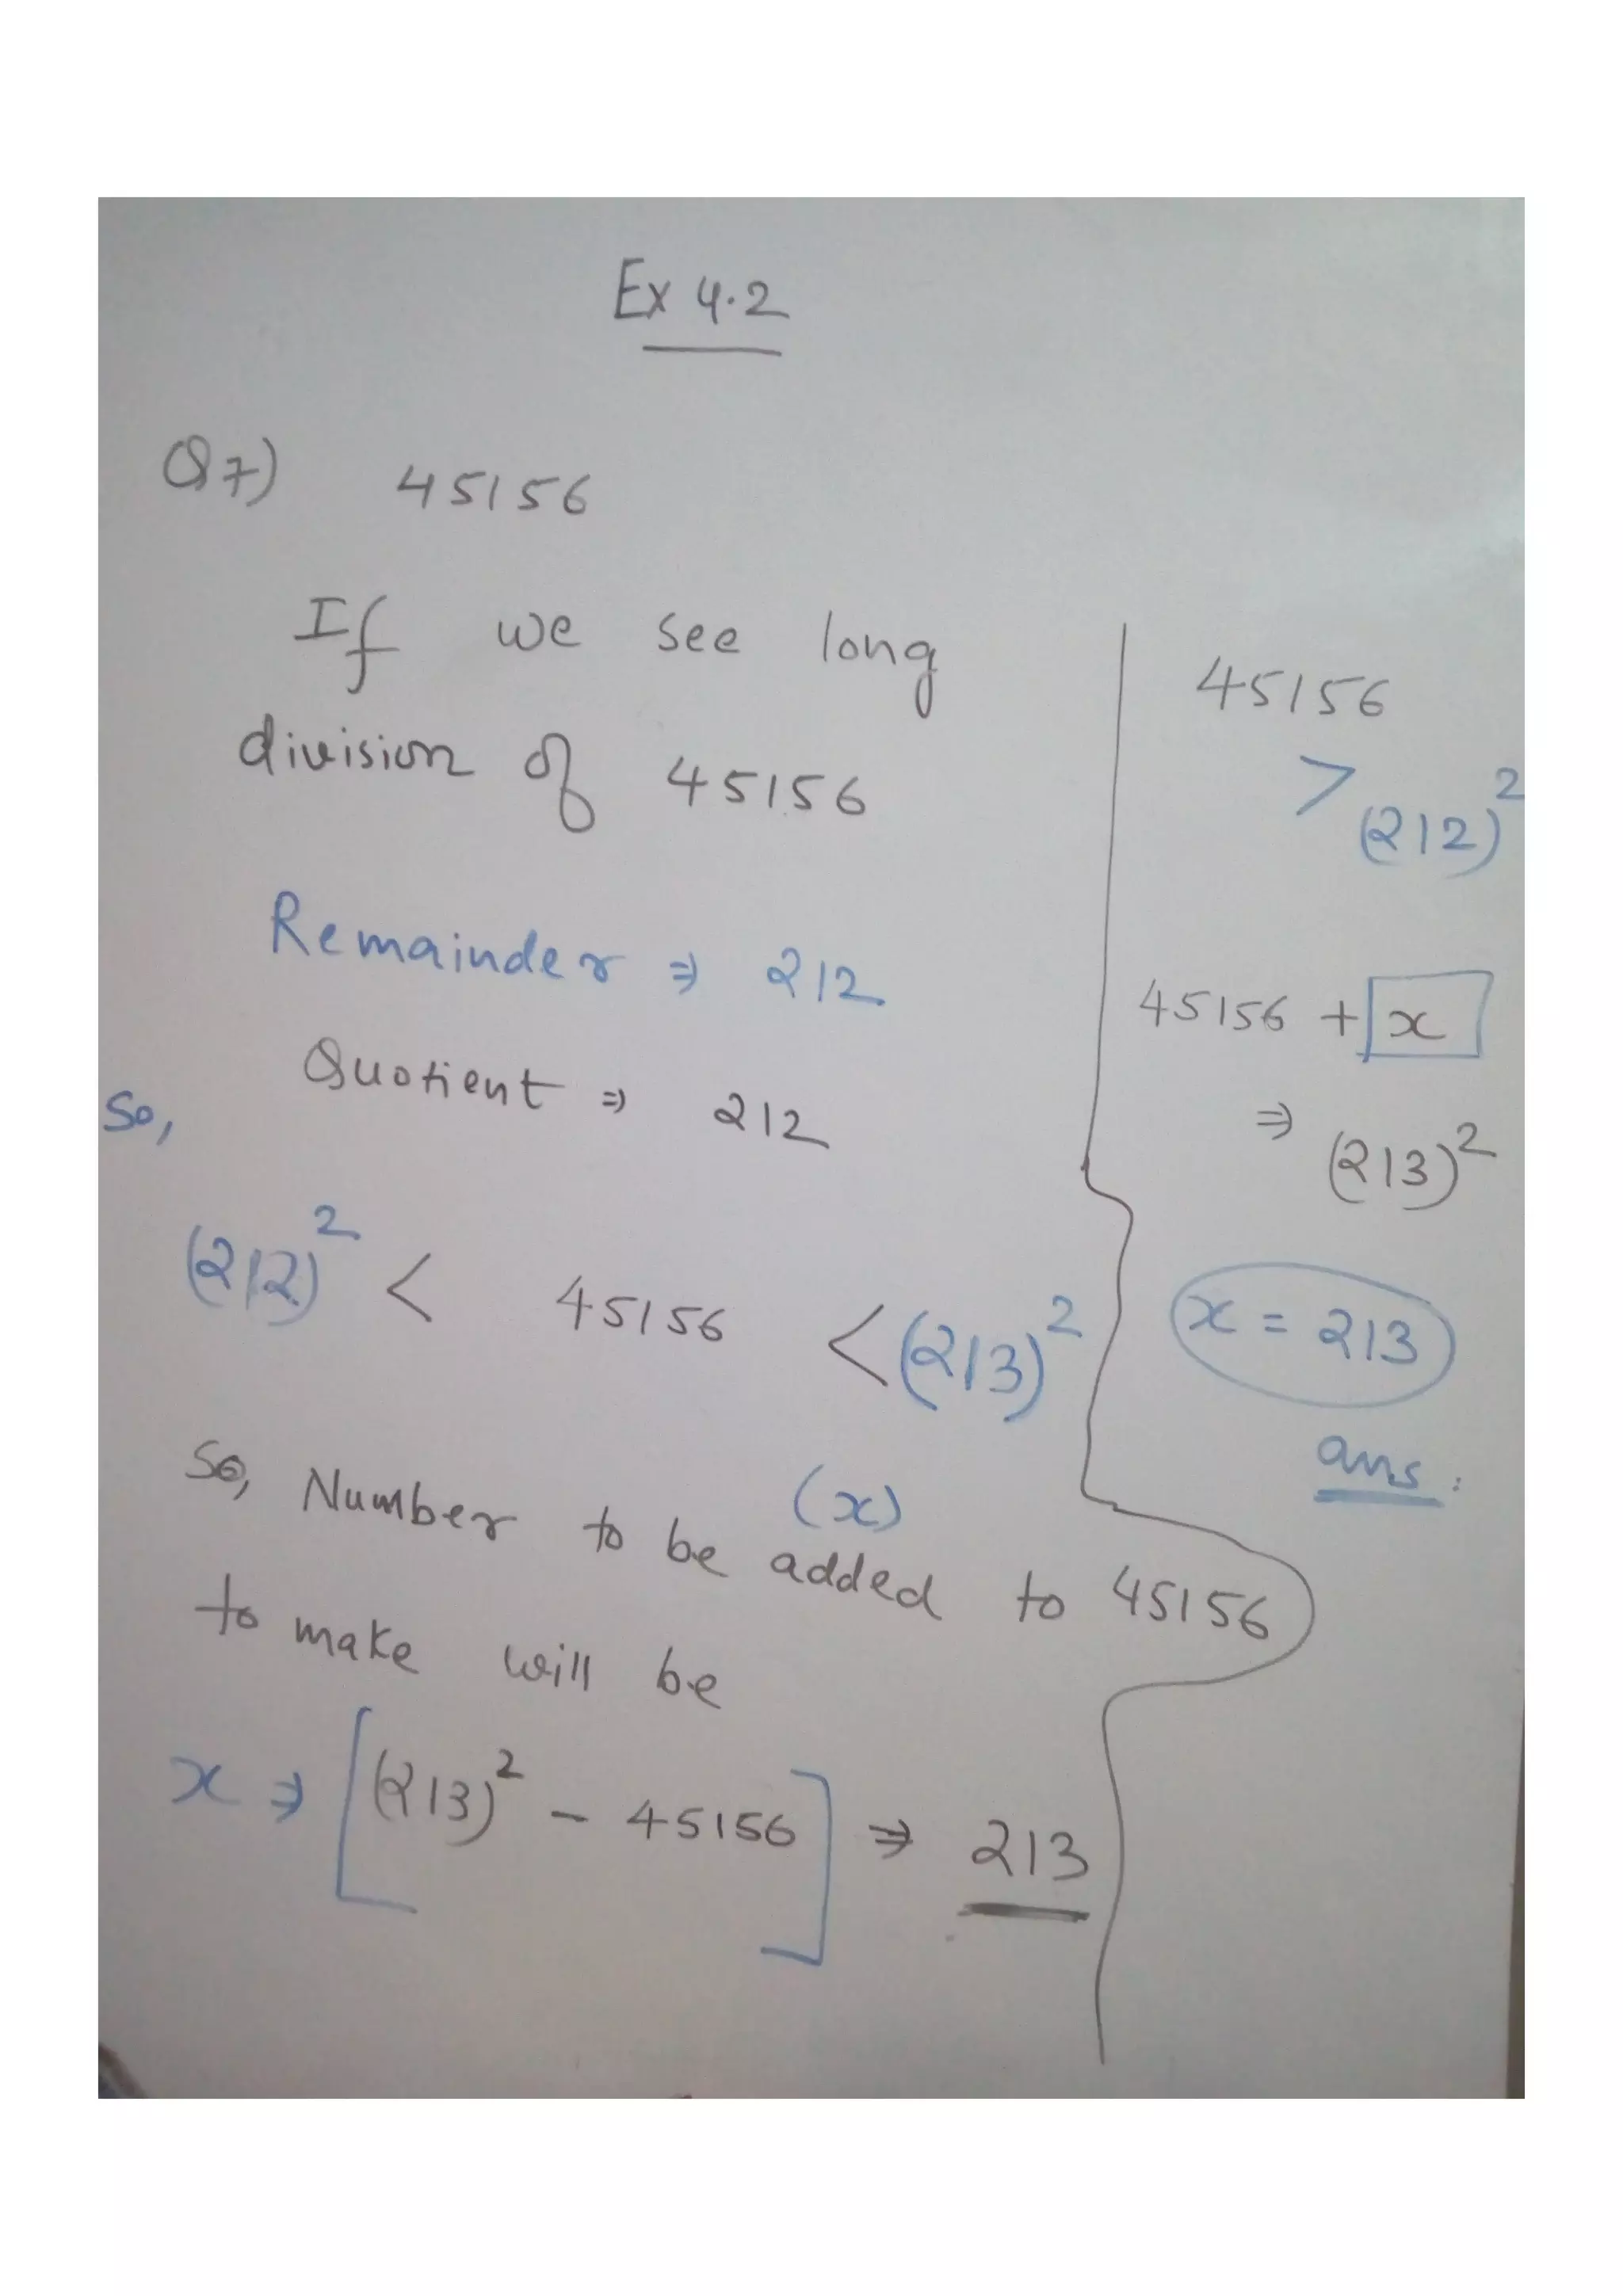 Ex 4.2
Q7) 45156
If we see long
division of 45156
Remainder ⇒ 212
Quotient ⇒ 212
So,
(212)² < 45156 < (213)²
So, Number to be added (x) to 45156
to make will be
x ⇒ [(213)² - 45156] ⇒ 213
45156
> (212)²
45156 + x
⇒ (213)²
x = 213
ans.